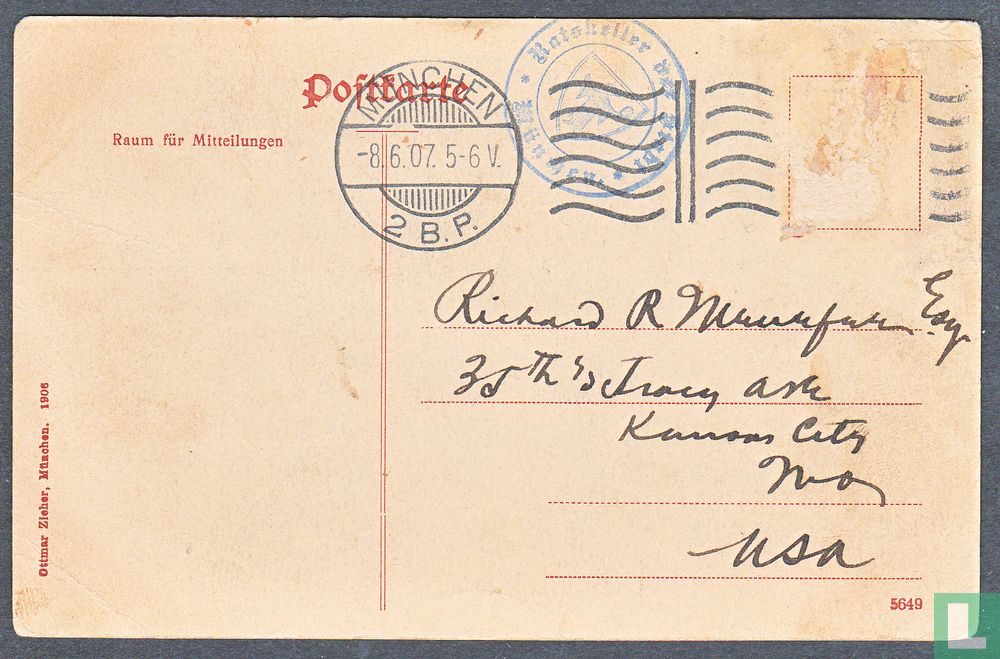 Postkarte
Raum für Mitteilungen
MÜNCHEN
-8.6.07. 5-6 V.
2 B.P.
* Ratskeller der Stadt * München.
Richard R Esq
35th & Tracy Ave
Kansas City
Mo
USA
Ottmar Zieher, München. 1906
5649
L